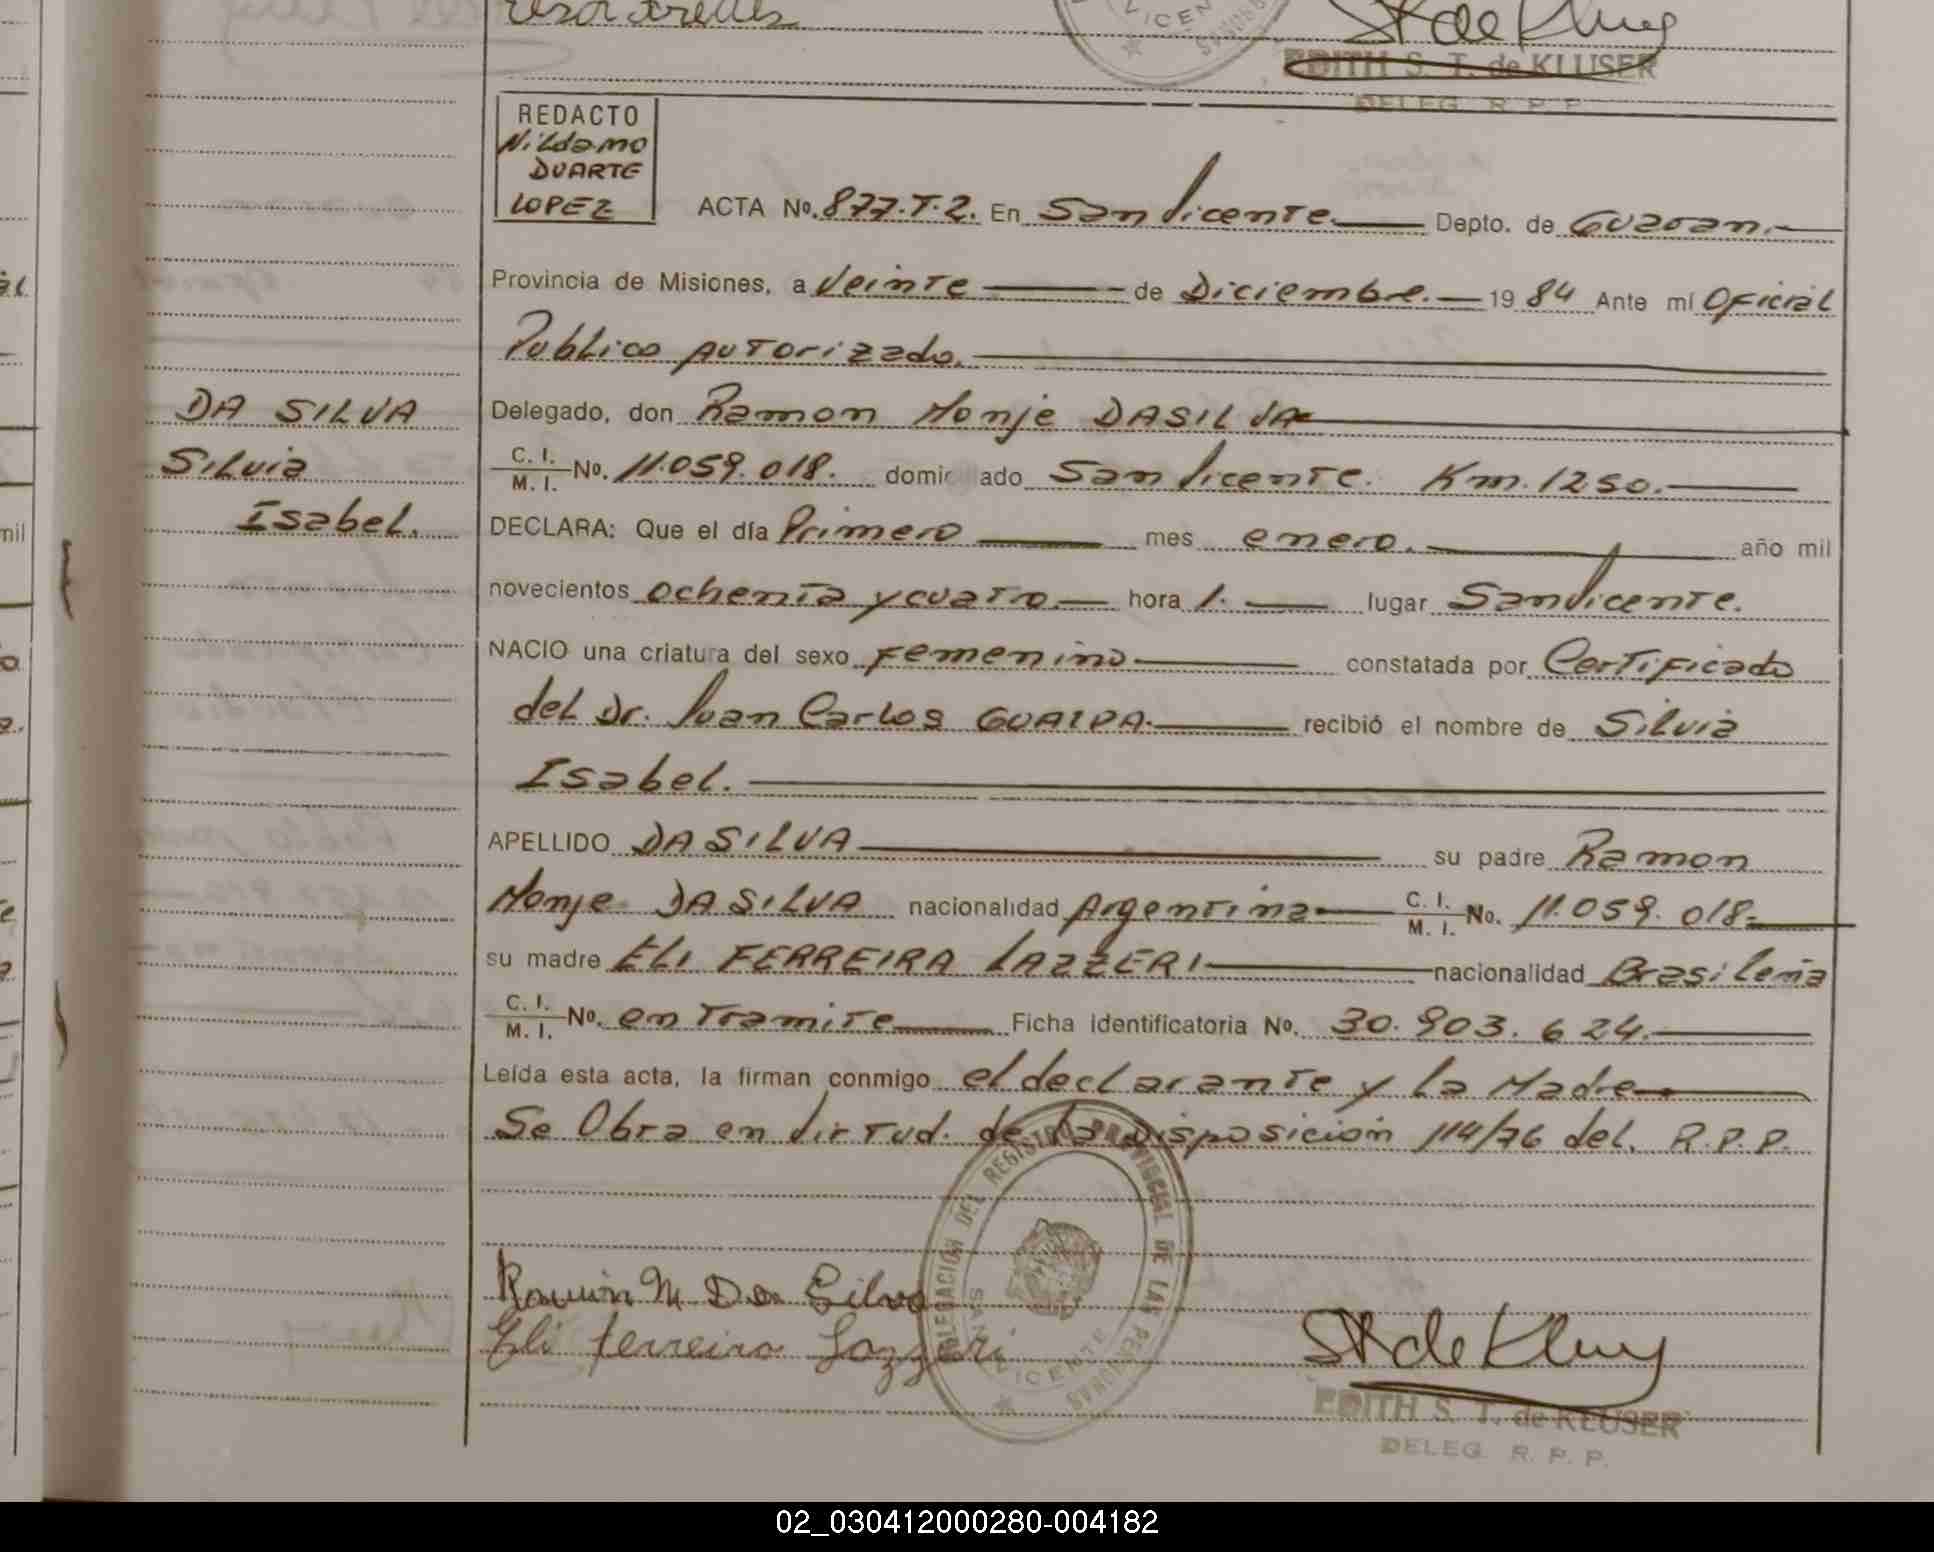 EDITH S. T. de KLUSER
DELEG. R. P. P.
REDACTO
Nildamo
DUARTE
LOPEZ
ACTA No. 877.T.2. En San Vicente Depto. de Guarani.
Provincia de Misiones, a Veinte de Diciembre. 1984 Ante mí Oficial
Publico Autorizado.
DA SILVA
Silvia
Isabel.
Delegado, don Ramon Monje DASILVA
C. I. M. I. No. 11.059.018. domiciliado San Vicente. Km. 1250.
DECLARA: Que el día Primero mes enero. año mil
novecientos ochenta y cuatro hora 1. lugar San Vicente.
NACIO una criatura del sexo Femenino constatada por Certificado
del Dr. Juan Carlos recibió el nombre de Silvia
Isabel.
APELLIDO DA SILVA su padre Ramon
Monje DA SILVA nacionalidad Argentina C. I. M. I. No. 11.059.018
su madre ELI FERREIRA LAZZERI nacionalidad Brasileña
C. I. M. I. No. en Tramite Ficha Identificatoria No. 30.903.624.
Leída esta acta, la firman conmigo el declarante y la Madre
Se Obra en Virtud. de la Disposición 114/76 del. R.P.P.
DELEGACION DEL REGISTRO PROVINCIAL DE LAS PERSONAS
SAN VICENTE
Ramón M Da Silva
Eli Ferreira Lazzeri
EDITH S. T. de KLUSER
DELEG. R. P. P.
02_030412000280-004182